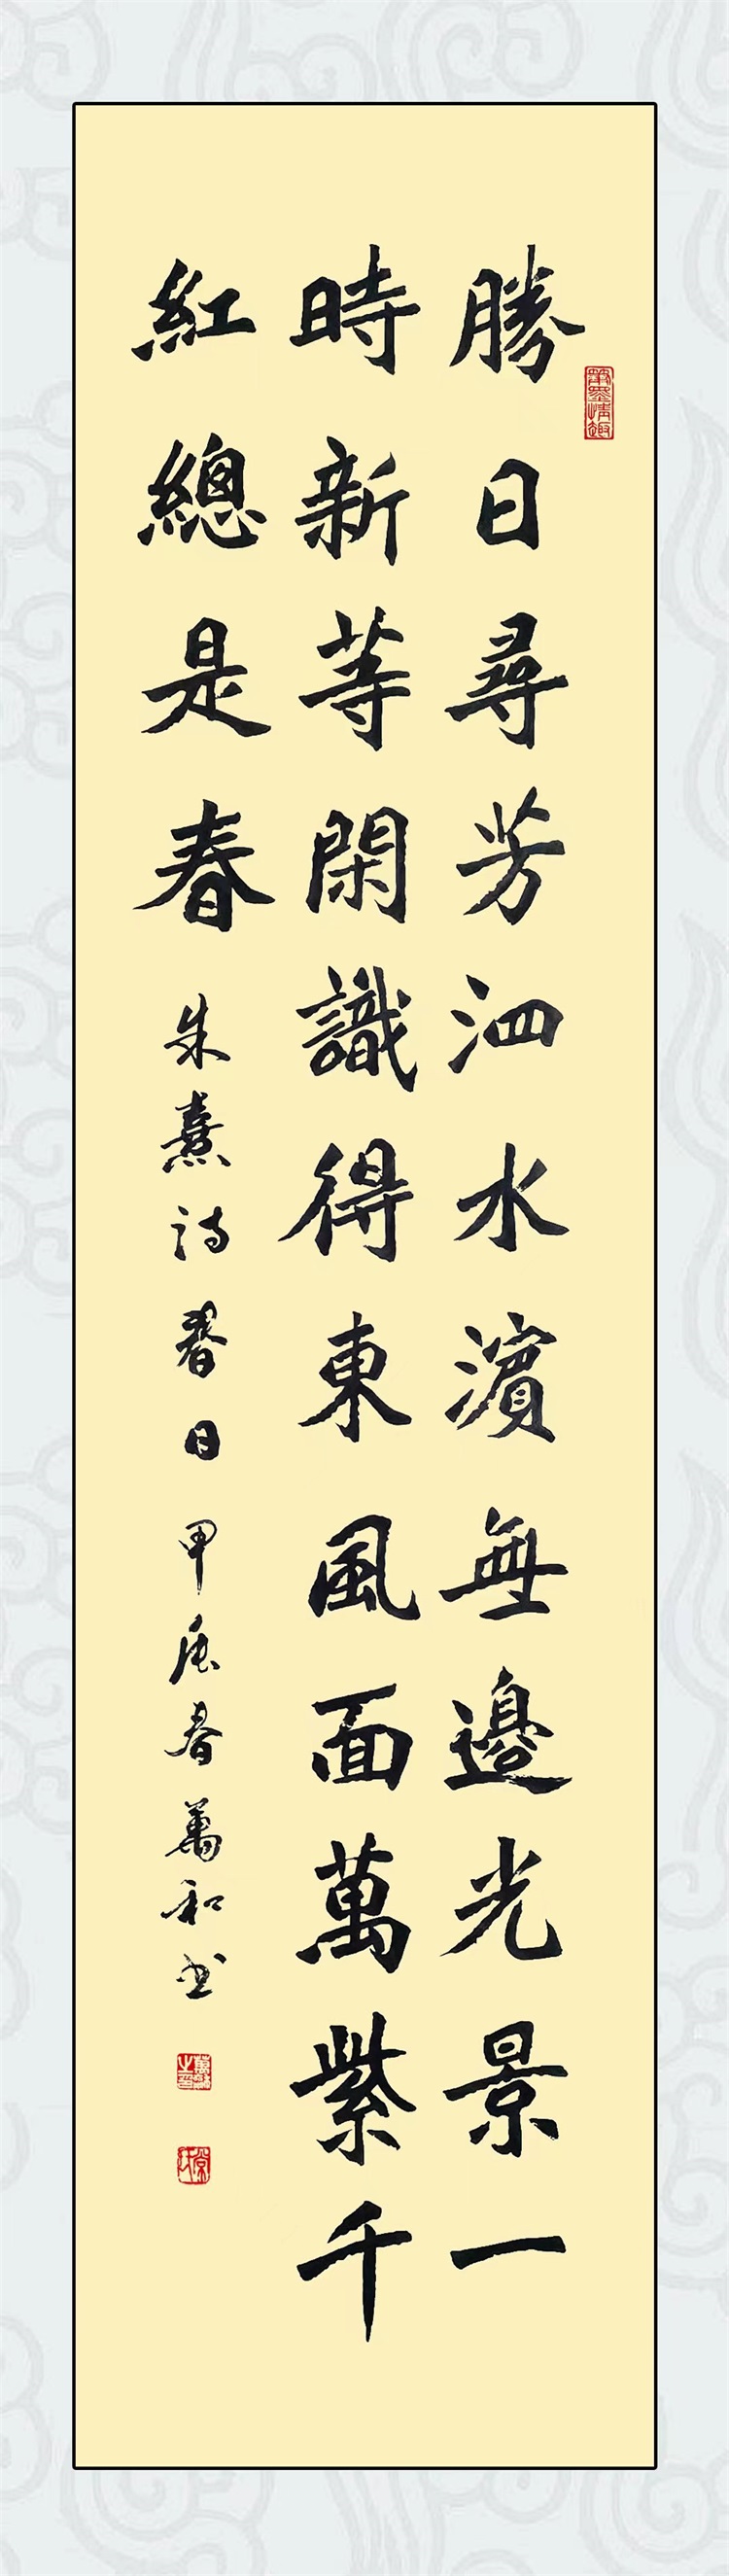 勝日尋芳泗水濱無邊光景一
時新等閑識得東風面萬紫千
紅總是春 朱熹詩春日 甲辰春萬和书
筆墨情趣